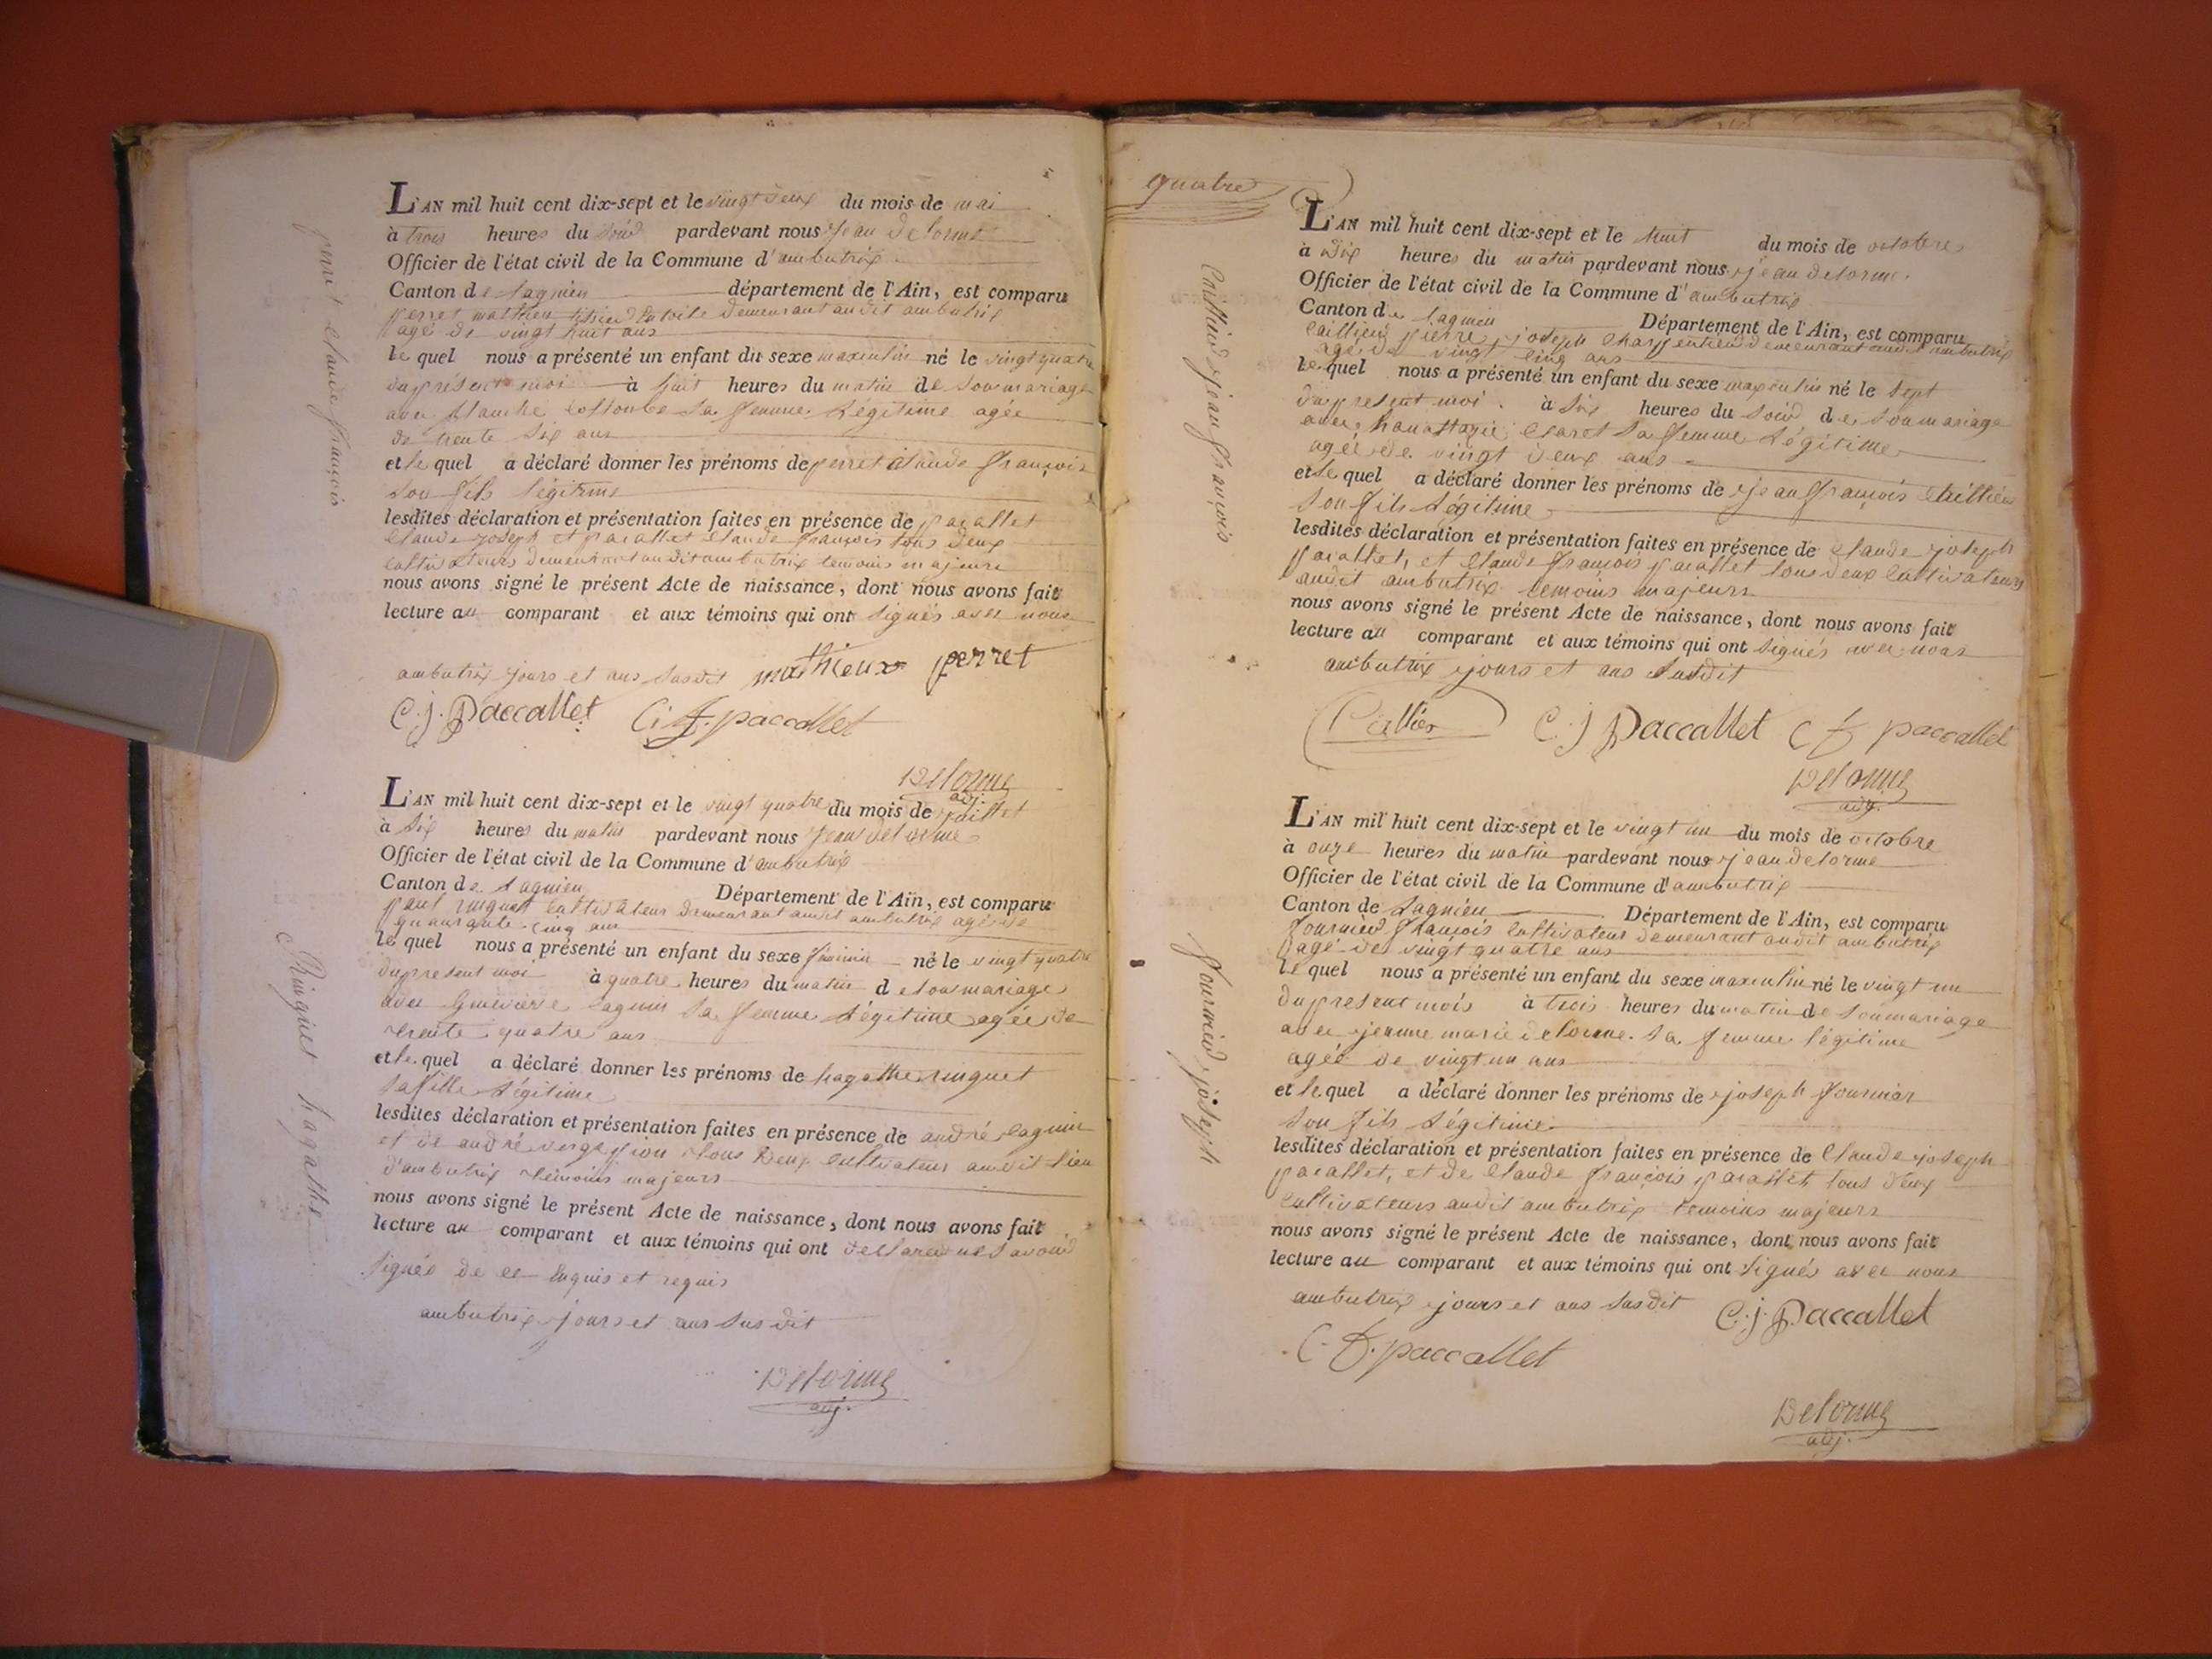 L'AN mil huit cent dix-sept et le vingt deux du mois de mai
à trois heures du soird pardevant nous jean delorme
Officier de l'état civil de la Commune d'ambutrix
Canton de lagnieu département de l'Ain, est comparu
perret mathieu demeurant audit ambutrix
agé de vingt huit ans
le quel nous a présenté un enfant du sexe maxculin né le vingt quatre
du présent moi à huit heures du matin de son mariage
avec sa femme légitime agée
de trente six ans
et le quel a déclaré donner les prénoms de perret claude françois
son fils légitime
lesdites déclaration et présentation faites en présence de pacallet
claude joseph et pacallet claude françois tous deux
cultivateurs demeurant audit ambutrix temoins majeurs
nous avons signé le présent Acte de naissance, dont nous avons fait
lecture au comparant et aux témoins qui ont signés avec nous
ambutrix jours et ans susdit mathieux perret
C. j. paccallet C. f. paccallet
Delorme
adj.
perret claude françois
L'AN mil huit cent dix-sept et le vingt quatre du mois de juillet
à six heures du matin pardevant nous jean delorme
Officier de l'état civil de la Commune d'ambutrix
Canton de lagnieu Département de l'Ain, est comparu
paul ringuet cultivateur demeurant audit ambutrix agé de
quaurante cinq ans
le quel nous a présenté un enfant du sexe feminin né le vingt quatre
du present moi à quatre heures du matin de son mariage
avec sa femme légitime agée de
trente quatre ans
et le quel a déclaré donner les prénoms de hagathe ringuet
sa fille légitime
lesdites déclaration et présentation faites en présence de andré
et de andré tous deux cultivateur audit lieu
d'ambutrix témoins majeurs
nous avons signé le présent Acte de naissance, dont nous avons fait
lecture au comparant et aux témoins qui ont
signés de ce enquis et requis
ambutrix jours et ans susdit
Delorme
adj.
Ringuet hagathe
quatre
L'AN mil huit cent dix-sept et le huit du mois de octobre
à dix heures du matin pardevant nous jean delorme
Officier de l'état civil de la Commune d'ambutrix
Canton de lagnieu Département de l'Ain, est comparu
pierre joseph charpentier demeurant audit ambutrix
agé de vingt cinq ans
le quel nous a présenté un enfant du sexe maxculin né le sept
du present moi à six heures du soird de son mariage
avec claret sa femme légitime
agée de vingt deux ans
et le quel a déclaré donner les prénoms de jean françois
son fils légitime
lesdites déclaration et présentation faites en présence de claude joseph
pacallet, et claude françois pacallet tous deux cultivateurs
audit ambutrix temoins majeurs
nous avons signé le présent Acte de naissance, dont nous avons fait
lecture au comparant et aux témoins qui ont signés avec nous
ambutrix jours et ans susdit
C. j paccallet C f paccallet
Delorme
adj.
jean françois
L'AN mil huit cent dix-sept et le vingt un du mois de octobre
à onze heures du matin pardevant nous jean delorme
Officier de l'état civil de la Commune d'ambutrix
Canton de Lagnieu Département de l'Ain, est comparu
françois cultivateur demeurant audit ambutrix
agé de vingt quatre ans
le quel nous a présenté un enfant du sexe maxculin né le vingt un
du present mois à trois heures du matin de son mariage
avec jeanne marie delorme sa femme légitime
agée de vingt un ans
et le quel a déclaré donner les prénoms de joseph
son fils légitime
lesdites déclaration et présentation faites en présence de Claude joseph
pacallet, et de claude françois pacallet tous deux
cultivateurs audit ambutrix temoins majeurs
nous avons signé le présent Acte de naissance, dont nous avons fait
lecture au comparant et aux témoins qui ont signés avec nous
ambutrix jours et ans susdit C. j. paccallet
C. f. paccallet
Delorme
adj.
joseph